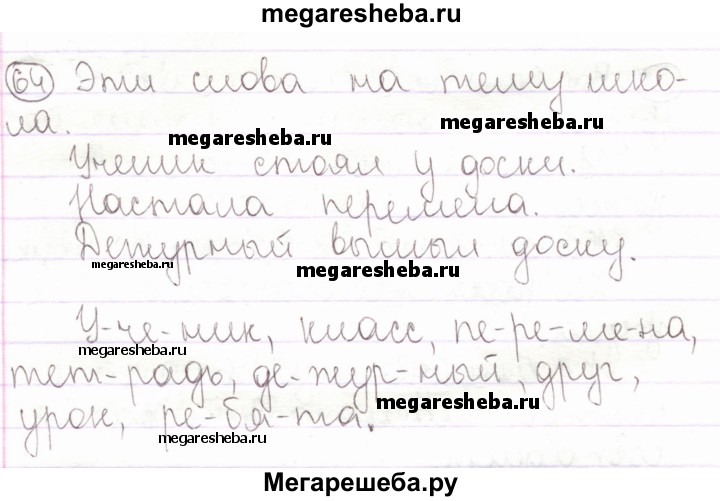 megaresheba.ru
64 Эти слова на тему шко-
ла.
megaresheba.ru megaresheba.ru
Ученик стоял у доски.
Настала перемена.
Дежурный вымыл доску.
megaresheba.ru megaresheba.ru
У-че-ник, класс, пе-ре-ме-на,
megaresheba.ru
тет-радь, де-жур-ный, друг,
megaresheba.ru
урок, ре-бя-та.
megaresheba.ru
Мегарешеба.ру